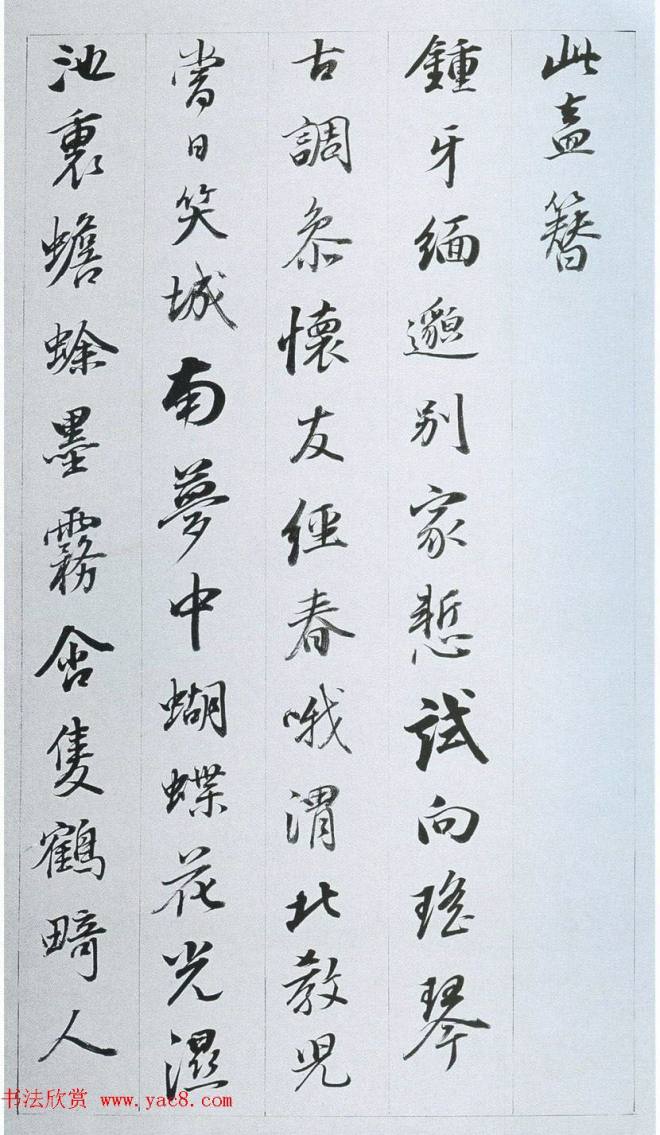 此盍簪
鍾牙緬邈別家慙試向瑤琴
古調參懷友經春哦渭北教兒
當日笑城南夢中蝴蝶花光濕
池裏蟾蜍墨霧含隻鶴畸人
书法欣赏 www.yac8.com